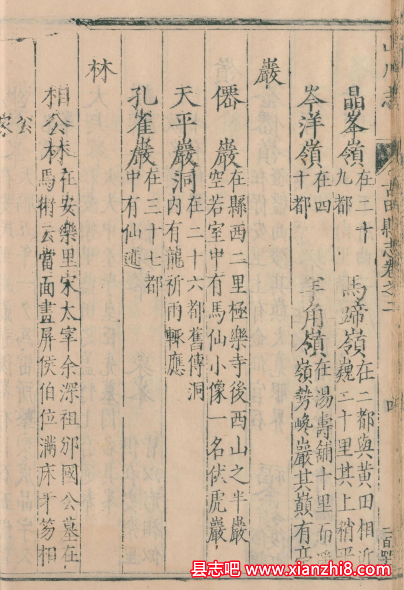 山川志
古田縣志卷之二
晶峯嶺 在二十九都
馬蹄嶺 在二都與黃田相近
巍二十里其上稍平
岑洋嶺 在四十都
羊角嶺 在湯壽舖十里
嶺勢峰巖其巔有亭
巖
僊巖 在縣西二里極樂寺後西山之半巖
空若室中有馬仙小像一名伏虎巖
天平巖洞 在二十六都舊傳洞
內有龍祈雨輒應
孔雀巖 在三十七都
中有仙迹
林
相公林 在安樂里宋太宰余深祖邠國公墓在
馬術云當面畫屏侯伯位滿床牙笏相
公
县志吧www.xianzhi8.com